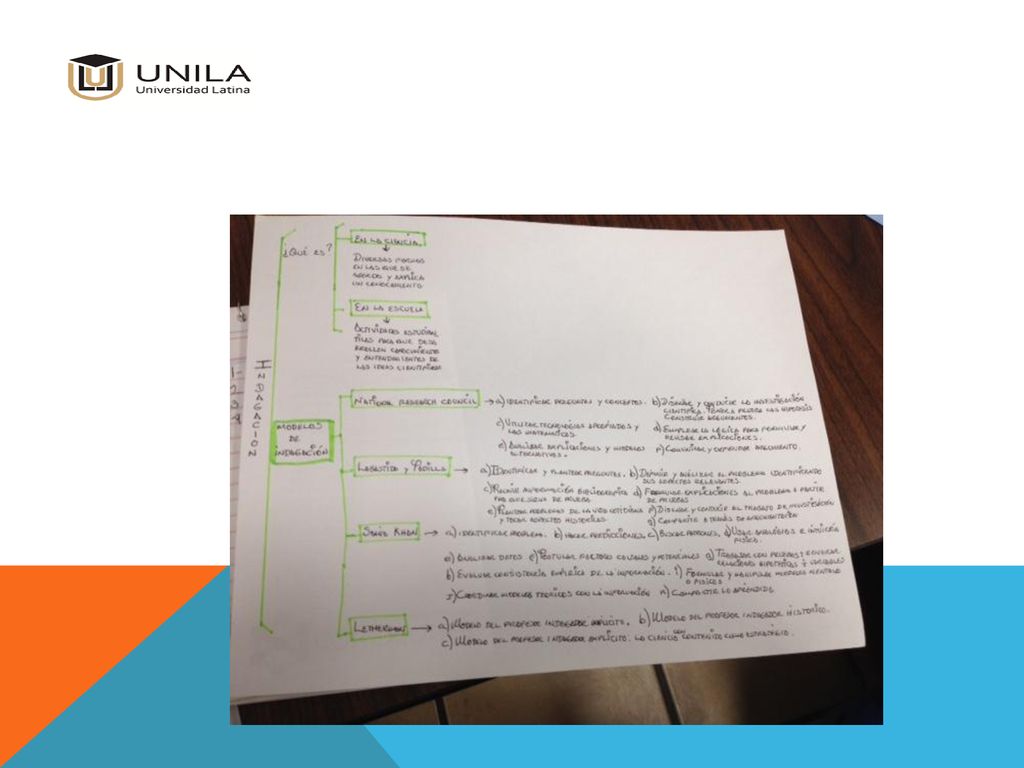 UNILA
Universidad Latina
INDAGACIÓN
¿Qué es?
EN LA CIENCIA
DIVERSAS FORMAS
EN LAS QUE SE
ABORDA Y EXPLICA
UN CONOCIMIENTO
EN LA ESCUELA
ACTIVIDADES ESTUDIAN
TILES PARA QUE DESA
RROLLEN CONOCIMIENTO
Y ENTENDIMIENTOS DE
LAS IDEAS CIENTÍFICAS
MODELOS
DE
INDAGACIÓN
NATIONAL RESEARCH COUNCIL
a) IDENTIFICAR PREGUNTAS Y CONCEPTOS. b) DISEÑAR Y CONDUCIR LA INVESTIGACIÓN
CIENTÍFICA. PRUEBA LAS HIPÓTESIS
CONSTRUIR ARGUMENTOS.
c) UTILIZAR TECNOLOGÍAS APROPIADAS Y
LAS MATEMÁTICAS.
d) EMPLEAR LA LÓGICA PARA FORMULAR Y
REVISAR EXPLICACIONES.
e) ANALIZAR EXPLICACIONES Y MODELOS
ALTERNATIVOS.
f) COMUNICAR Y DEFENDER ARGUMENTO.
Y PADILLA
a) IDENTIFICAR Y PLANTEAR PREGUNTAS. b) DEFINIR Y ANALIZAR AL PROBLEMA IDENTIFICANDO
SUS ASPECTOS RELEVANTES.
c) REUNIR INFORMACIÓN BIBLIOGRÁFICA
PARA QUE SIRVA DE PRUEBA
d) FORMULAR EXPLICACIONES AL PROBLEMA A PARTIR
DE PRUEBAS
e) PLANTEAR PROBLEMAS DE LA VIDA COTIDIANA
Y TOCAR ASPECTOS HISTÓRICOS
f) DISEÑAR Y CONDUCIR AL TRABAJO DE INVESTIGACIÓN
g) COMPARTIR A TRAVÉS DE ARGUMENTACIÓN
KHAN
a) IDENTIFICAR PROBLEMA. b) HACER PREDICCIONES. c) BUSCAR PATRONES. d) USAR ANALOGÍAS E INTUICIÓN
FÍSICA.
e) ANALIZAR DATOS f) POSTULAR FACTORES CAUSALES POTENCIALES g) TRABAJAR CON PRUEBAS
RELACIONES HIPOTÉTICAS VARIABLES
h) EVALUAR CONSISTENCIA EMPÍRICA DE LA INFORMACIÓN. i) FORMULAR Y MANIPULAR MODELOS MENTALES
O FÍSICOS
j) COORDINAR MODELOS TEÓRICOS CON LA INFORMACIÓN k) COMPARTIR LO APRENDIDO
a) MODELO DEL PROFESOR INDAGADOR IMPLÍCITO. b) MODELO DEL PROFESOR INDAGADOR HISTÓRICO.
c) MODELO DEL PROFESOR INDAGADOR EXPLÍCITO. LA CIENCIA CON CONTENIDO COMO ESTRATEGIA.